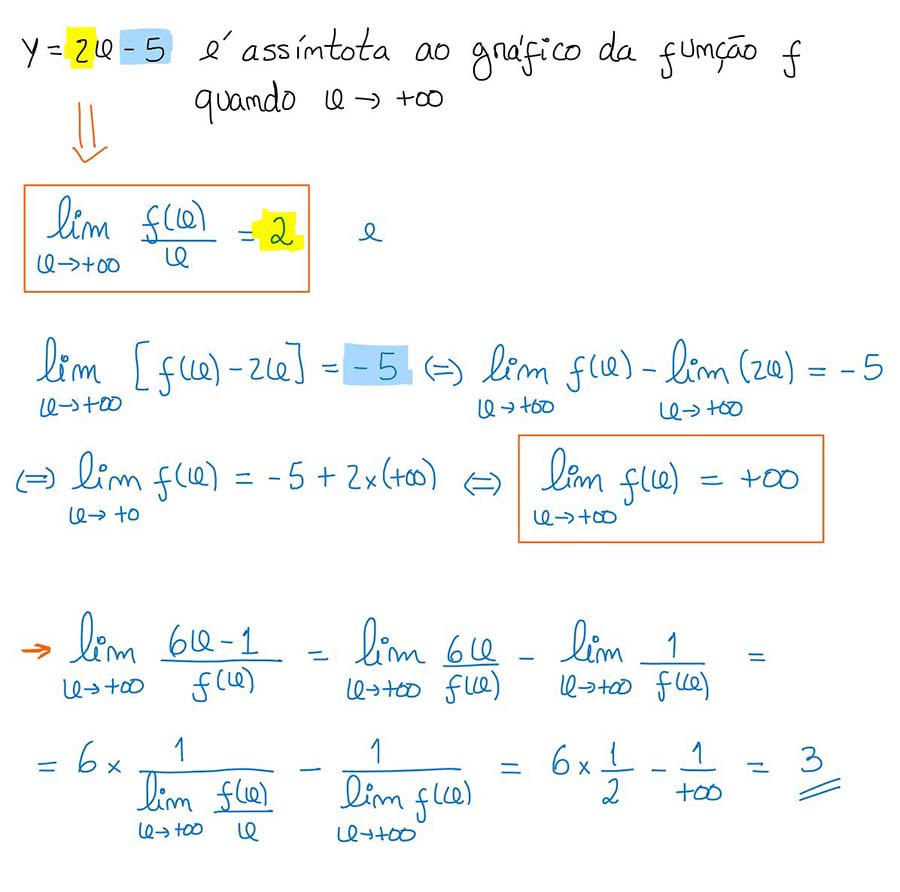 y = 2x - 5 é assíntota ao gráfico da função f
quando x → +∞
⇓
lim x→+∞ f(x)/x = 2 e
lim x→+∞ [f(x) - 2x] = -5 (=) lim x→+∞ f(x) - lim x→+∞ (2x) = -5
(=) lim x→+0 f(x) = -5 + 2×(+∞) (=) lim x→+∞ f(x) = +∞
→ lim x→+∞ (6x - 1)/f(x) = lim x→+∞ 6x/f(x) - lim x→+∞ 1/f(x) =
= 6 × 1/(lim x→+∞ f(x)/x) - 1/(lim x→+∞ f(x)) = 6 × 1/2 - 1/+∞ = 3